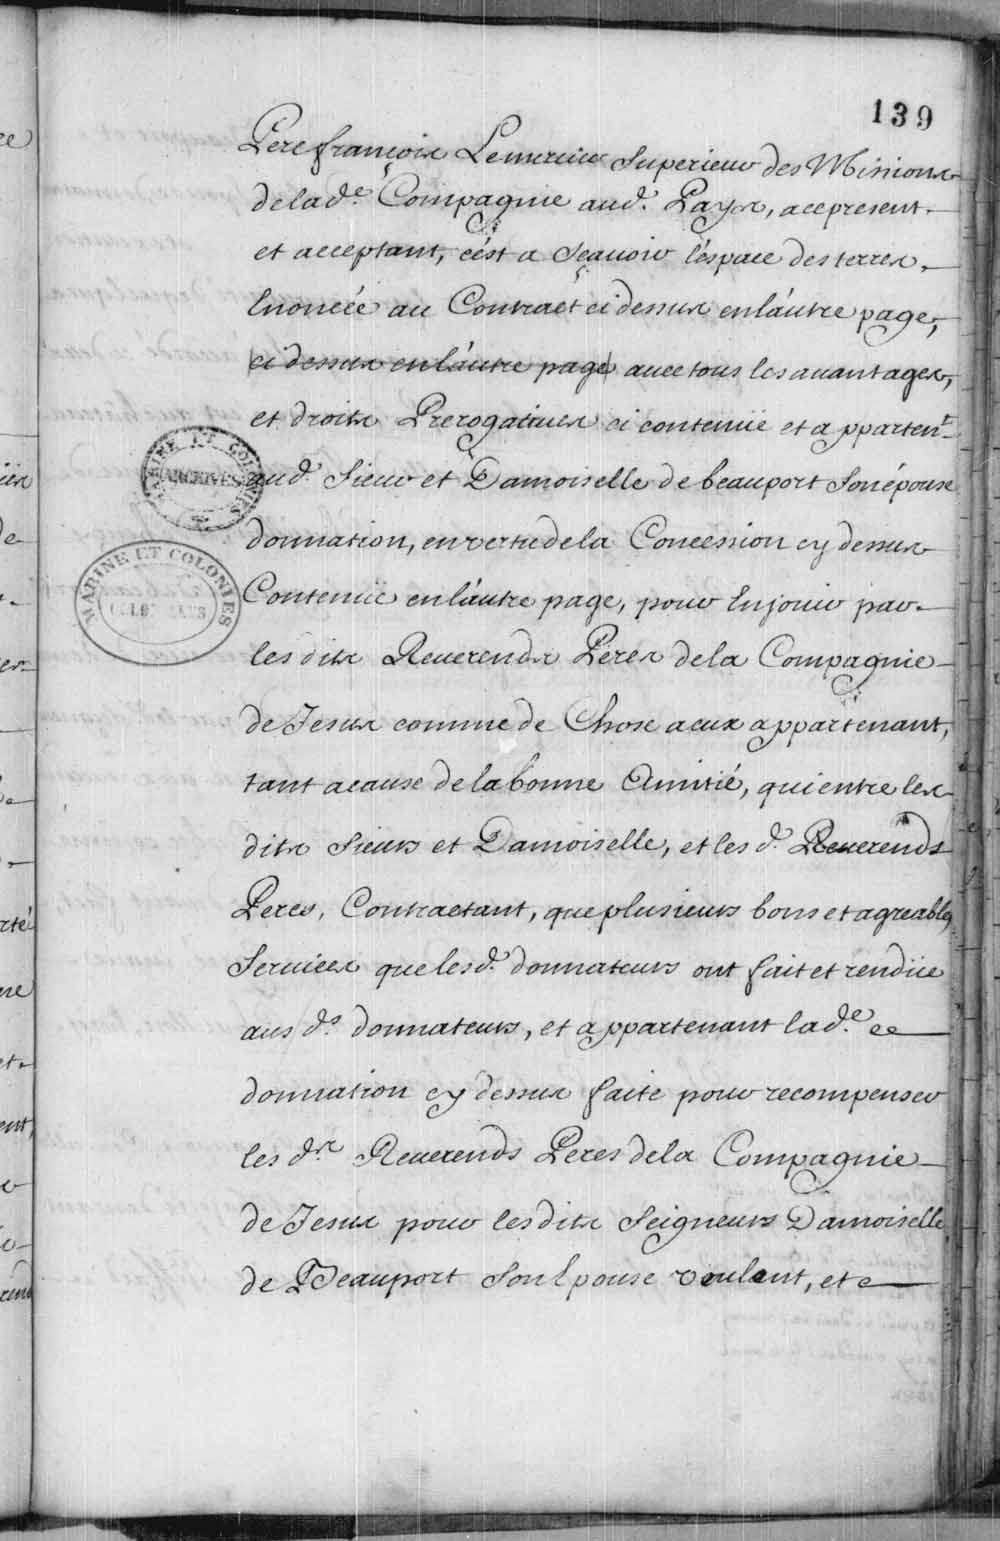 139
Pere françois Lemercier Superieur des Missions
de lad.e Compagnie aud. Pays, ace present
et acceptant, cést a Sçauoir léspace des terres
Enoncée au Contract ci dessus enláutre page,
ci dessus enláutre page auec tous les auantages,
et droits Prerogatiues ci contenüe et apparten.t
aud. Sieur et Damoiselle de beauport Sonépouse
donnation, en vertu de la Concession cy dessus
Contenüe enláutre page, pour Enjouir par
les dits Reuerends Peres de la Compagnie
de Jesus comme de Chose a eux appartenant,
tant acause de la bonne Amitié, qui entre les
dits Sieurs et Damoiselle, et les d. Reuerends
Peres, Contractant, que plusieurs bons et agreables
Seruices que lesd. donnateurs ont fait et rendüe
aus d.s donnateurs, et appartenant lad.e ce
donnation cy dessus faite pour recompenser
les d.s Reuerends Peres de la Compagnie
de Jesus pour les dits Seigneurs Damoiselle
de Beauport Son Epouse voulant, et e
MARINE ET COLONIES
ARCHIVES
MARINE ET COLONIES